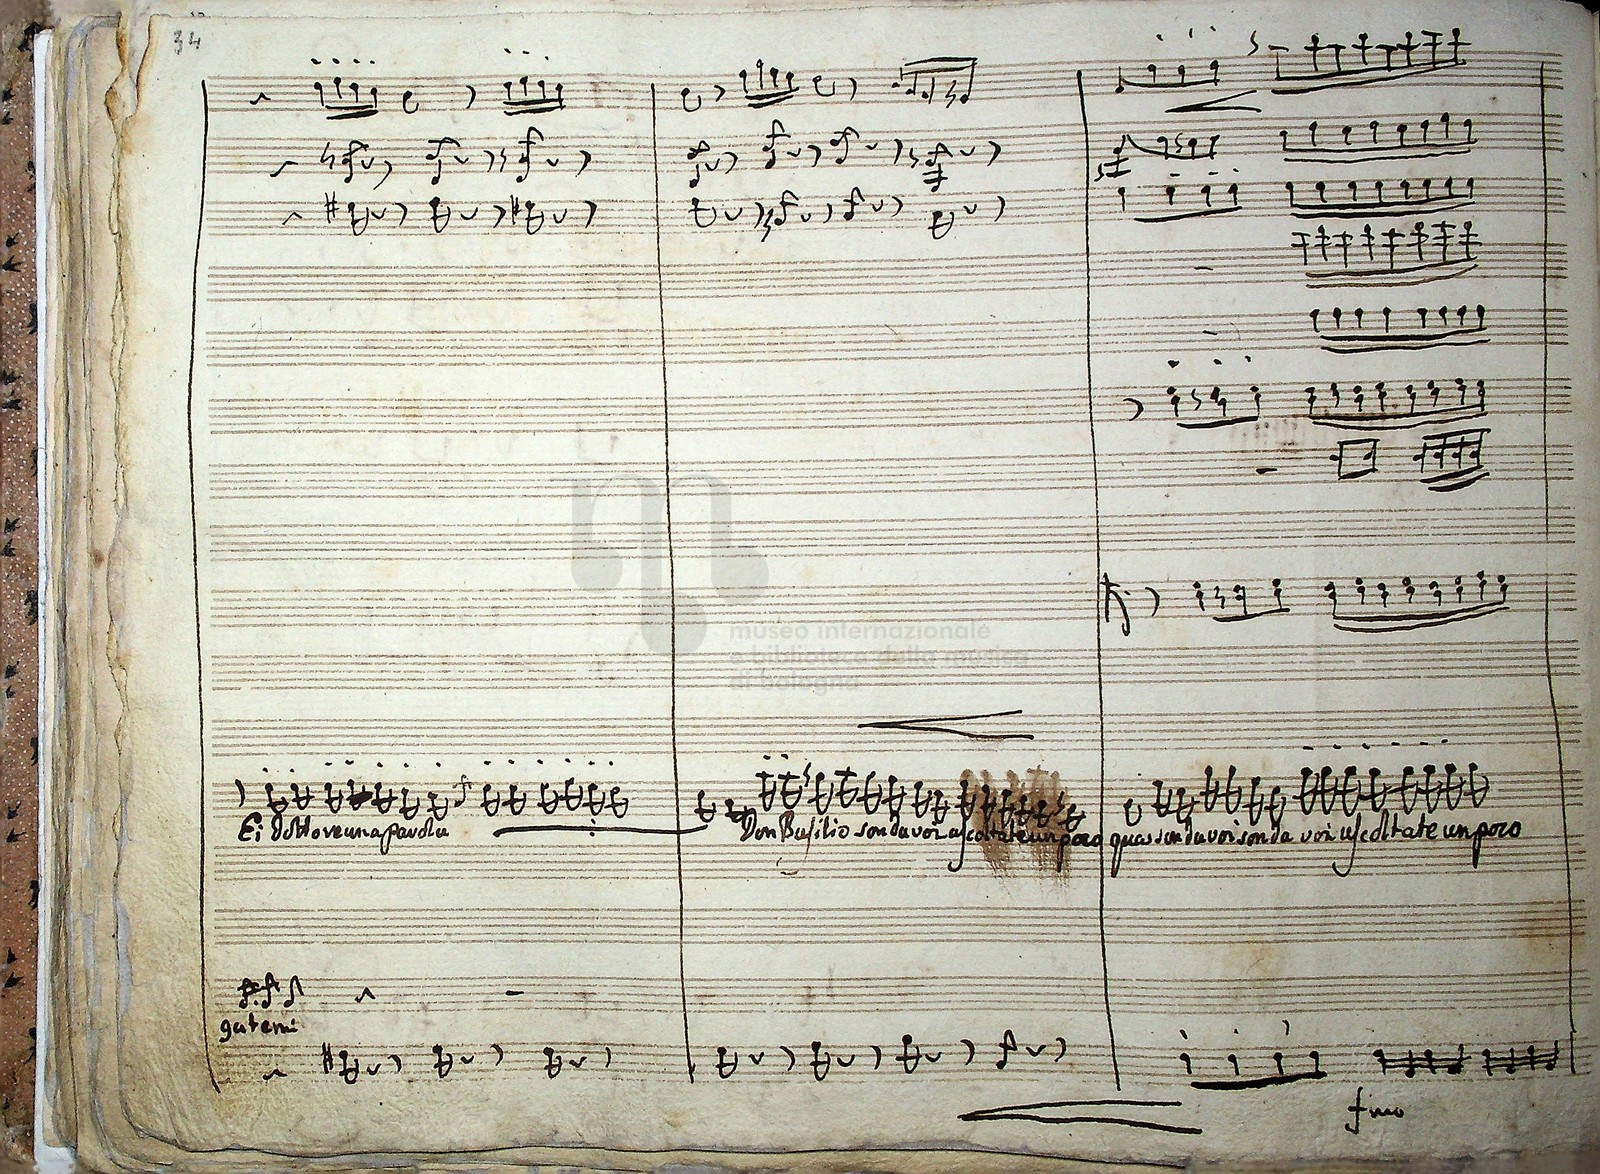 34
museo internazionale
e biblioteca della musica
di bologna
Ei dottore una parola
Don Basilio son da voi ascoltate un poco qua son da voi son da voi ascoltate un poco
gatemi
fmo